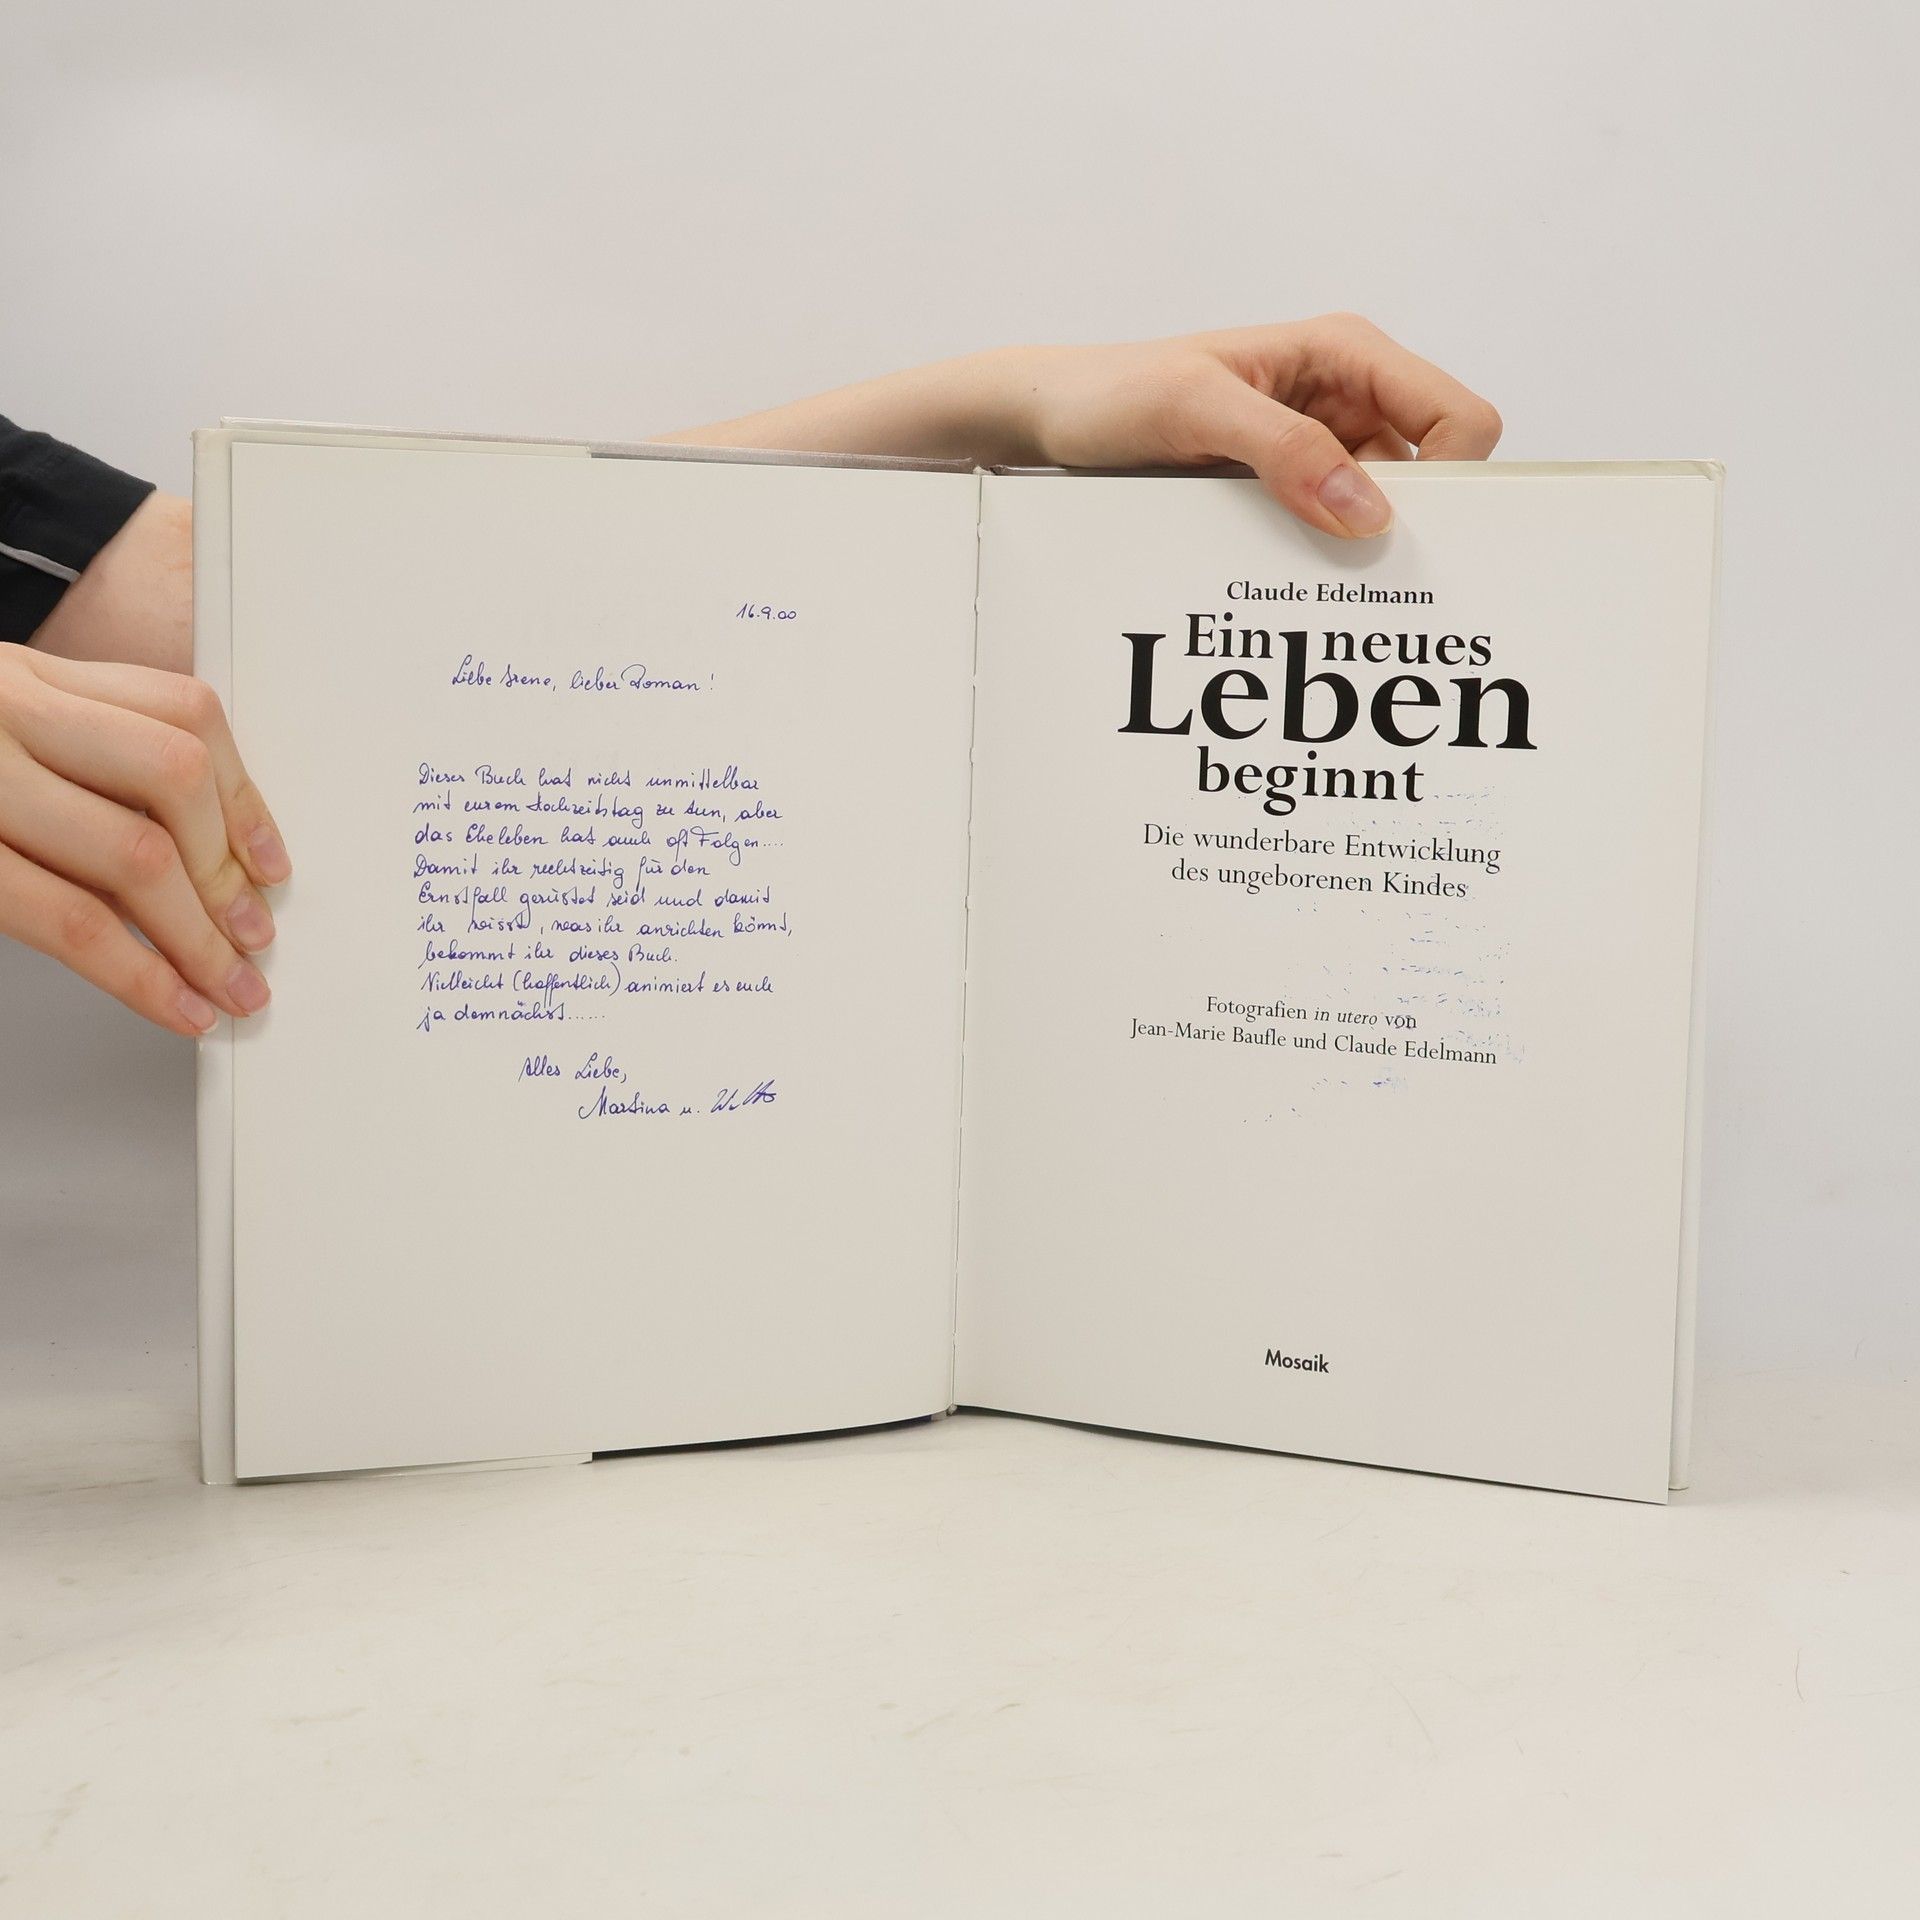 16.9.00
Liebe Irene, lieber Roman!
Dieses Buch hat nicht unmittelbar
mit eurem Hochzeitstag zu tun, aber
das Eheleben hat auch oft Folgen....
Damit ihr rechtzeitig für den
Ernstfall gerüstet seid und damit
ihr wisst, was ihr anrichten könnt,
bekommt ihr dieses Buch.
Vielleicht (hoffentlich) animiert es euch
ja demnächst......
Alles Liebe,
Martina u.
Claude Edelmann
Ein neues
Leben
beginnt
Die wunderbare Entwicklung
des ungeborenen Kindes
Fotografien in utero von
Jean-Marie Baufle und Claude Edelmann
Mosaik